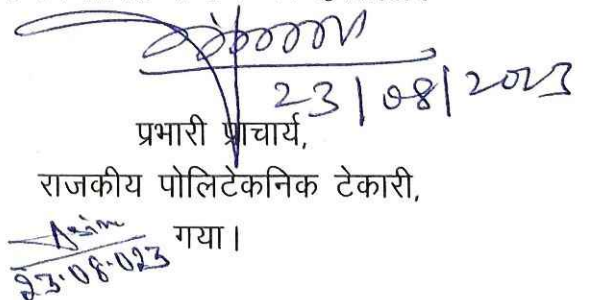 23/08/2023
प्रभारी प्राचार्य,
राजकीय पोलिटेकनिक टेकारी,
गया।
23.08.023